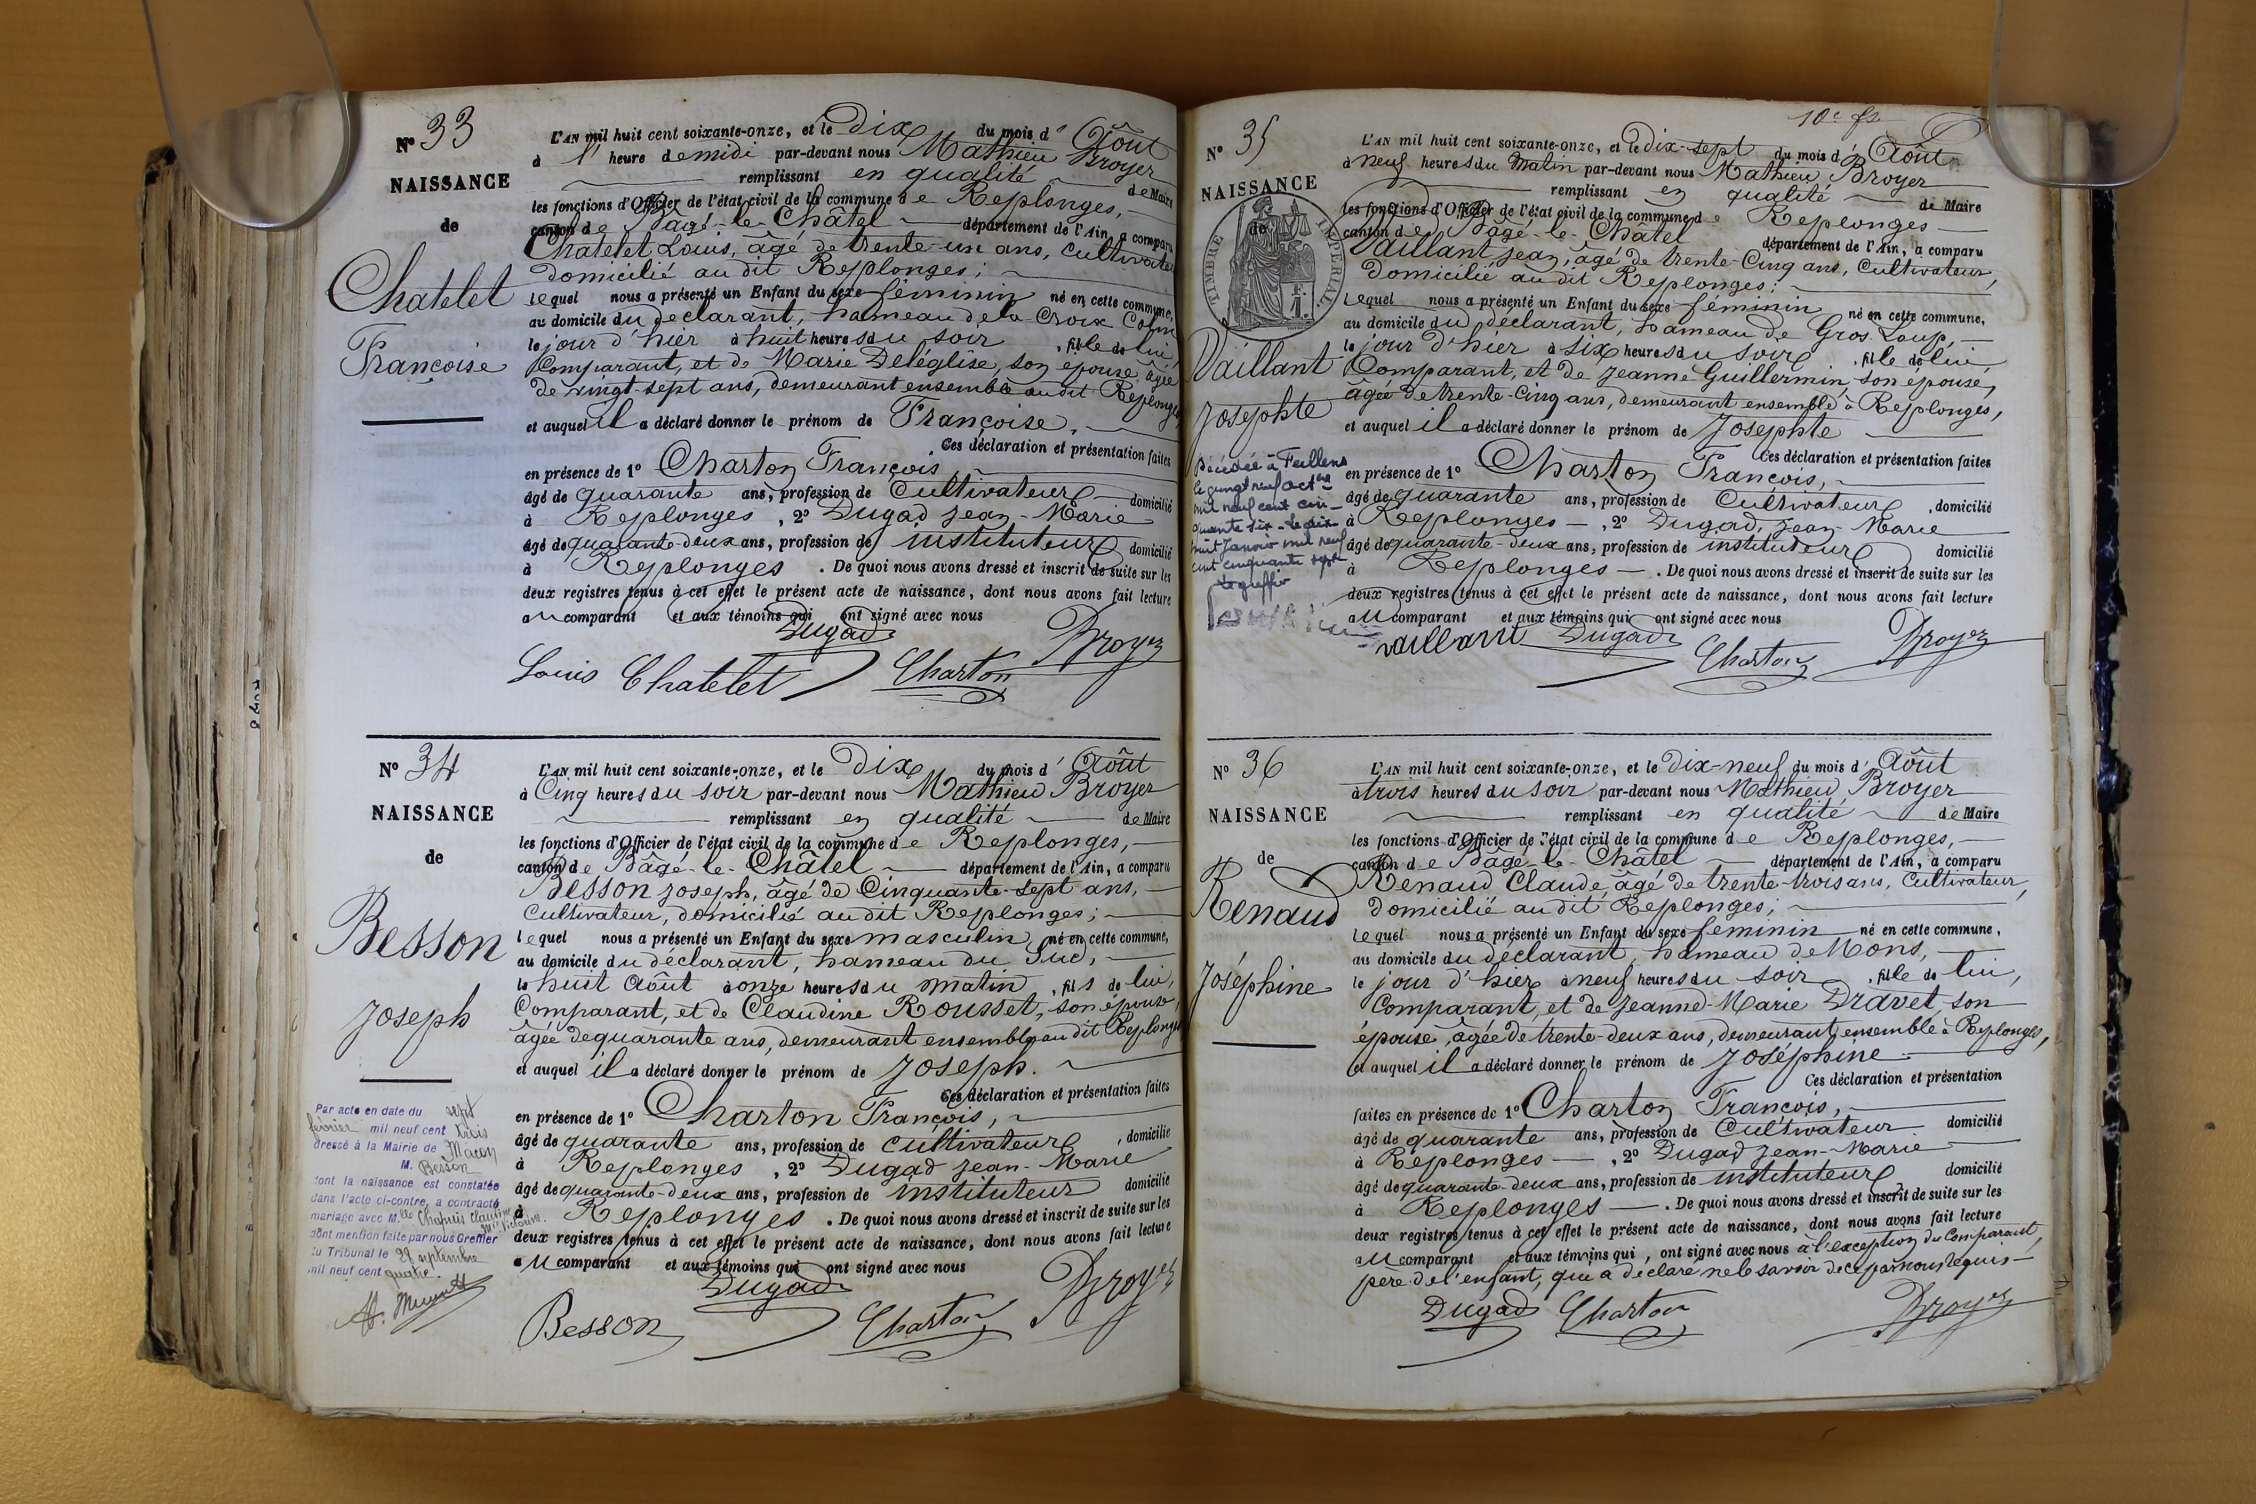 N° 33
NAISSANCE
de
Chatelet
Françoise
L'AN mil huit cent soixante-onze, et le Dix du mois d' Août
à l' heure de midi par-devant nous Mathieu Broyer
remplissant en qualité de Maire
les fonctions d'Officier de l'état civil de la commune de Replonges,
canton de Bâgé-le-Châtel département de l'Ain, a comparu
Chatelet Louis, âgé de trente-un ans, cultivateur
domicilié au dit Replonges;
lequel nous a présenté un Enfant du sexe féminin né en cette commune,
au domicile du déclarant, hameau de la Croix
le jour d'hier à huit heures du soir, fille de lui,
Comparant, et de Marie Deléglise, son épouse, âgée
de vingt-sept ans, demeurant ensemble au dit Replonges
et auquel il a déclaré donner le prénom de Françoise.
Ces déclaration et présentation faites
en présence de 1° Charton François,
âgé de quarante ans, profession de Cultivateur domicilié
à Replonges, 2° Dugad Jean-Marie
âgé de quarante-deux ans, profession de instituteur domicilié
à Replonges. De quoi nous avons dressé et inscrit de suite sur les
deux registres tenus à cet effet le présent acte de naissance, dont nous avons fait lecture
au comparant et aux témoins qui ont signé avec nous
Dugad
Louis Chatelet Charton Broyer
N° 34
NAISSANCE
de
Besson
Joseph
Par acte en date du sept
février mil neuf cent trois
dressé à la Mairie de Macon
M. Besson
dont la naissance est constatée
dans l'acte ci-contre, a contracté
mariage avec M.lle Chapuis Claudine
Mie Victoire.
dont mention faite par nous Greffier
du Tribunal le 29 septembre
mil neuf cent quatre.
L'AN mil huit cent soixante-onze, et le Dix du mois d' Août
à Cinq heures du soir par-devant nous Mathieu Broyer
remplissant en qualité de Maire
les fonctions d'Officier de l'état civil de la commune de Replonges,
canton de Bâgé-le-Châtel département de l'Ain, a comparu
Besson Joseph, âgé de Cinquante-sept ans,
Cultivateur, domicilié au dit Replonges;
lequel nous a présenté un Enfant du sexe masculin, né en cette commune,
au domicile du déclarant, hameau du Sud,
le huit Août à onze heures du matin, fils de lui,
Comparant, et de Claudine Rousset, son épouse,
âgée de quarante ans, demeurant ensemble au dit Replonges
et auquel il a déclaré donner le prénom de Joseph.
Ces déclaration et présentation faites
en présence de 1° Charton François,
âgé de quarante ans, profession de Cultivateur, domicilié
à Replonges, 2° Dugad Jean-Marie
âgé de quarante-deux ans, profession de instituteur domicilié
à Replonges. De quoi nous avons dressé et inscrit de suite sur les
deux registres tenus à cet effet le présent acte de naissance, dont nous avons fait lecture
au comparant et aux témoins qui ont signé avec nous
Dugad
Besson Charton Broyer
10e fe
N° 35
NAISSANCE
de
TIMBRE IMPERIAL
Vaillant
Josephte
Décédée à Feillens
le vingt neuf octbre
mil neuf cent cin-
quante six - Le dix
huit Janvier mil neuf
cent cinquante sept
Le greffier
L'AN mil huit cent soixante-onze, et le Dix-sept du mois d' Août
à neuf heures du Matin par-devant nous Mathieu Broyer
remplissant en qualité de Maire
les fonctions d'Officier de l'état civil de la commune de Replonges
canton de Bâgé-le-Châtel département de l'Ain, a comparu
Vaillant Jean, âgé de trente-Cinq ans, Cultivateur,
domicilié au dit Replonges;
lequel nous a présenté un Enfant du sexe féminin né en cette commune,
au domicile du déclarant, hameau de Gros Loup,
le jour d'hier à six heures du soir, fille de lui,
Comparant, et de Jeanne Guillermin, son épouse,
âgée de trente-Cinq ans, demeurant ensemble à Replonges,
et auquel il a déclaré donner le prénom de Josephte
Ces déclaration et présentation faites
en présence de 1° Charton François,
âgé de quarante ans, profession de Cultivateur, domicilié
à Replonges, 2° Dugad, Jean-Marie
âgé de quarante-deux ans, profession de instituteur domicilié
à Replonges. De quoi nous avons dressé et inscrit de suite sur les
deux registres tenus à cet effet le présent acte de naissance, dont nous avons fait lecture
au comparant et aux témoins qui ont signé avec nous
vaillant Dugad Charton Broyer
N° 36
NAISSANCE
de
Renaud
Joséphine
L'AN mil huit cent soixante-onze, et le Dix-neuf du mois d' Août
à trois heures du soir par-devant nous Mathieu Broyer
remplissant en qualité de Maire
les fonctions d'Officier de l'état civil de la commune de Replonges,
canton de Bâgé-le-Châtel département de l'Ain, a comparu
Renaud Claude, âgé de trente-trois ans, Cultivateur,
domicilié au dit Replonges;
lequel nous a présenté un Enfant du sexe féminin né en cette commune,
au domicile du déclarant, hameau de Mons,
le jour d'hier à neuf heures du soir, fille de lui,
Comparant, et de Jeanne-Marie Dravet, son
épouse, âgée de trente-deux ans, demeurant ensemble à Replonges,
et auquel il a déclaré donner le prénom de Joséphine
Ces déclaration et présentation
faites en présence de 1° Charton François,
âgé de quarante ans, profession de Cultivateur domicilié
à Replonges, 2° Dugad Jean-Marie
âgé de quarante-deux ans, profession de instituteur domicilié
à Replonges. De quoi nous avons dressé et inscrit de suite sur les
deux registres tenus à cet effet le présent acte de naissance, dont nous avons fait lecture
au comparant et aux témoins qui, ont signé avec nous à l'exception du Comparant,
père de l'enfant, qui a déclaré ne le savoir de ce par nous requis
Dugad Charton Broyer